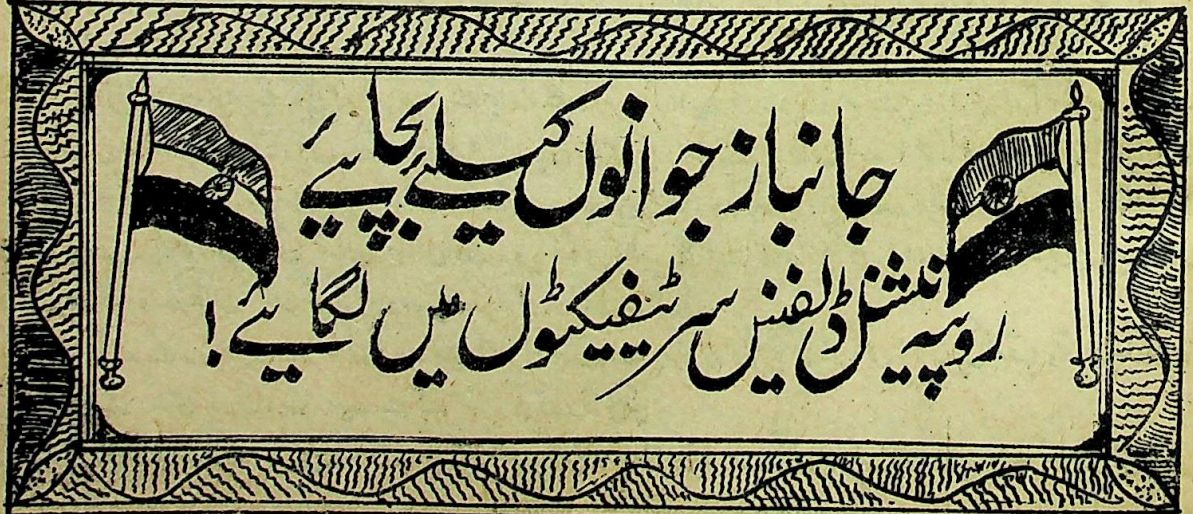 جانباز جوانوں کیلئے بچائیے
روپیہ نیشنل ڈلفینس سرٹیفیکٹوں میں لگائیے!